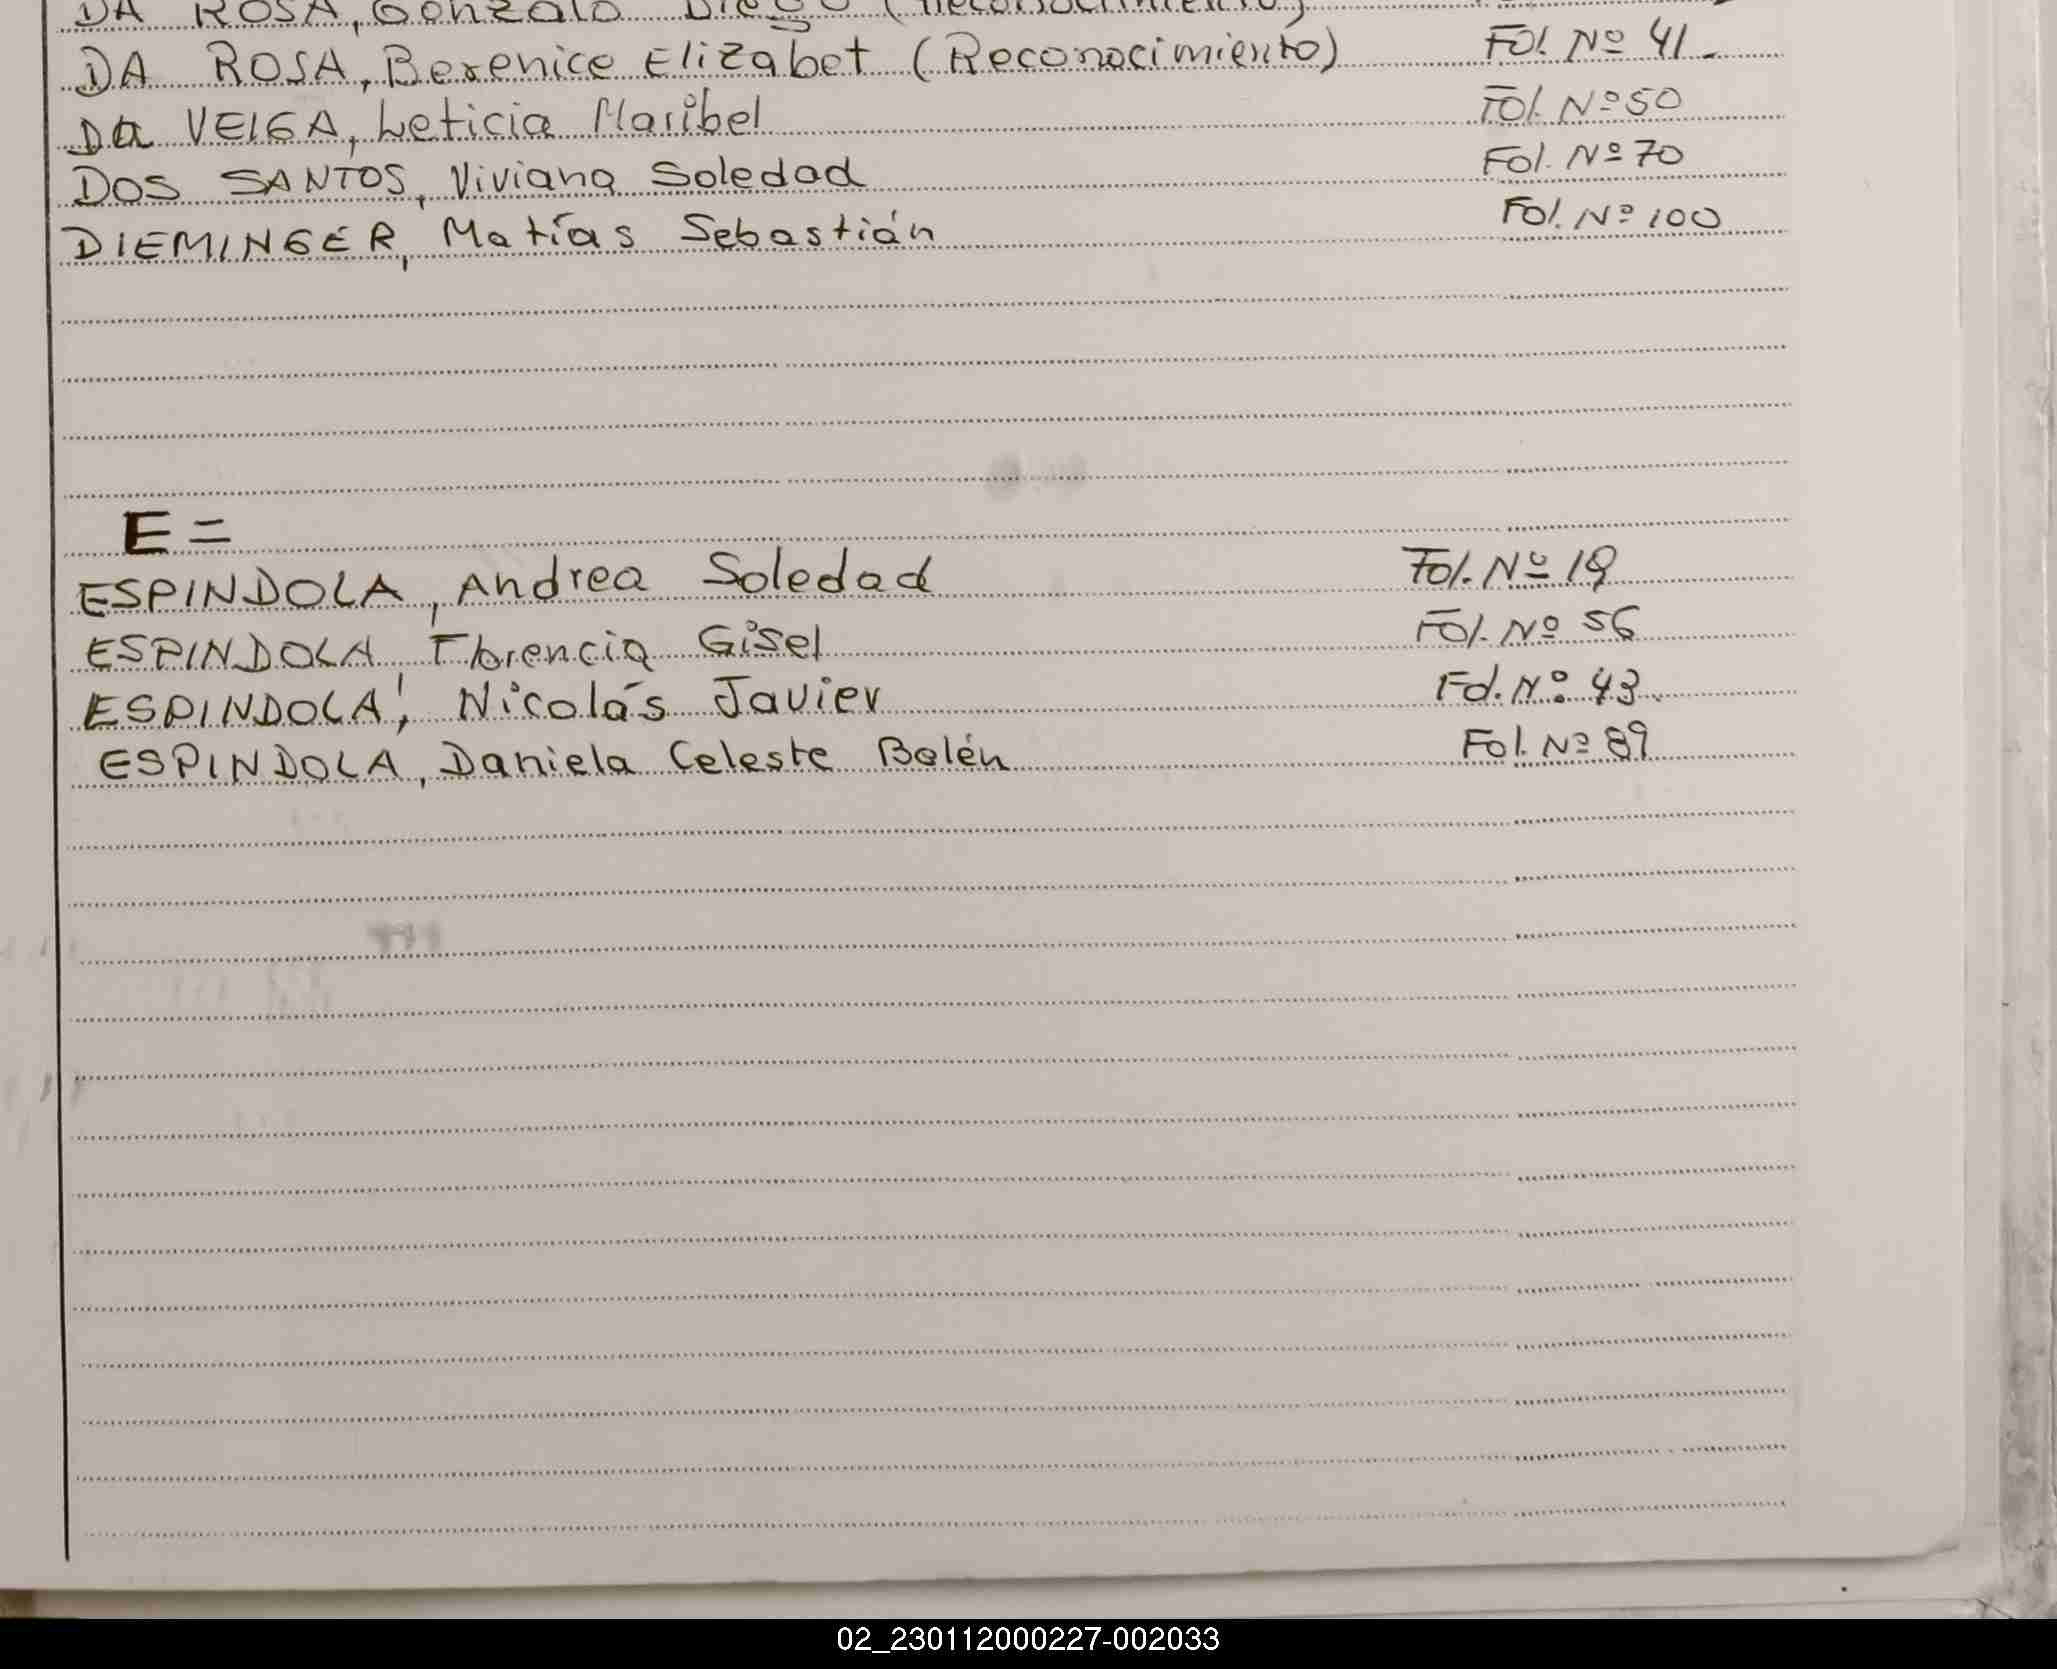 DA ROSA, Gonzalo Diego (Reconocimiento)
DA ROSA, Berenice Elizabet (Reconocimiento) Fol. Nº 41.-
Da VEIGA, Leticia Maribel Fol. Nº 50
DOS SANTOS, Viviana Soledad Fol. Nº 70
DIEMINGER, Matías Sebastián Fol. Nº 100
E =
ESPINDOLA, Andrea Soledad Fol. Nº 19
ESPINDOLA, Florencia Gisel Fol. Nº 56
ESPINDOLA, Nicolás Javier Fol. Nº 43.
ESPINDOLA, Daniela Celeste Belén Fol. Nº 89
02_230112000227-002033